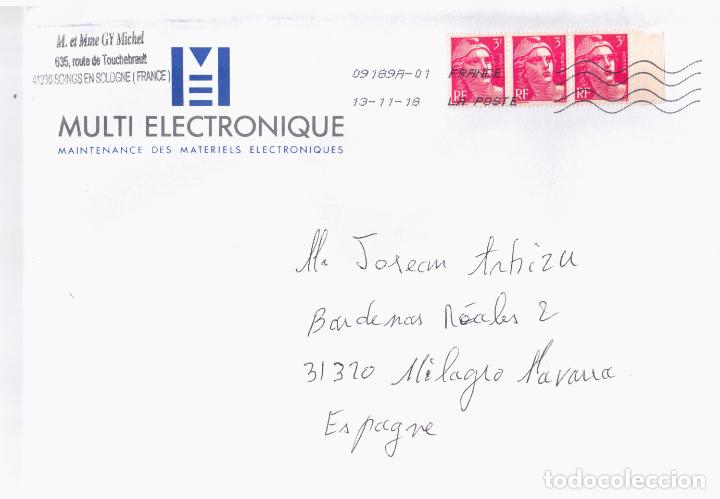 M. et Mme GY Michel
635, route de Touchebrault
41230 SOINGS EN SOLOGNE (FRANCE)
MULTI ELECTRONIQUE
MAINTENANCE DES MATERIELS ELECTRONIQUES
09189A-01 FRANCE
13-11-18 LA POSTE
3F 3F 3F
RF RF RF
Mr Josean Arbizu
Bardenas Réales 2
31320 Milagro Navarra
Espagne
todocoleccion